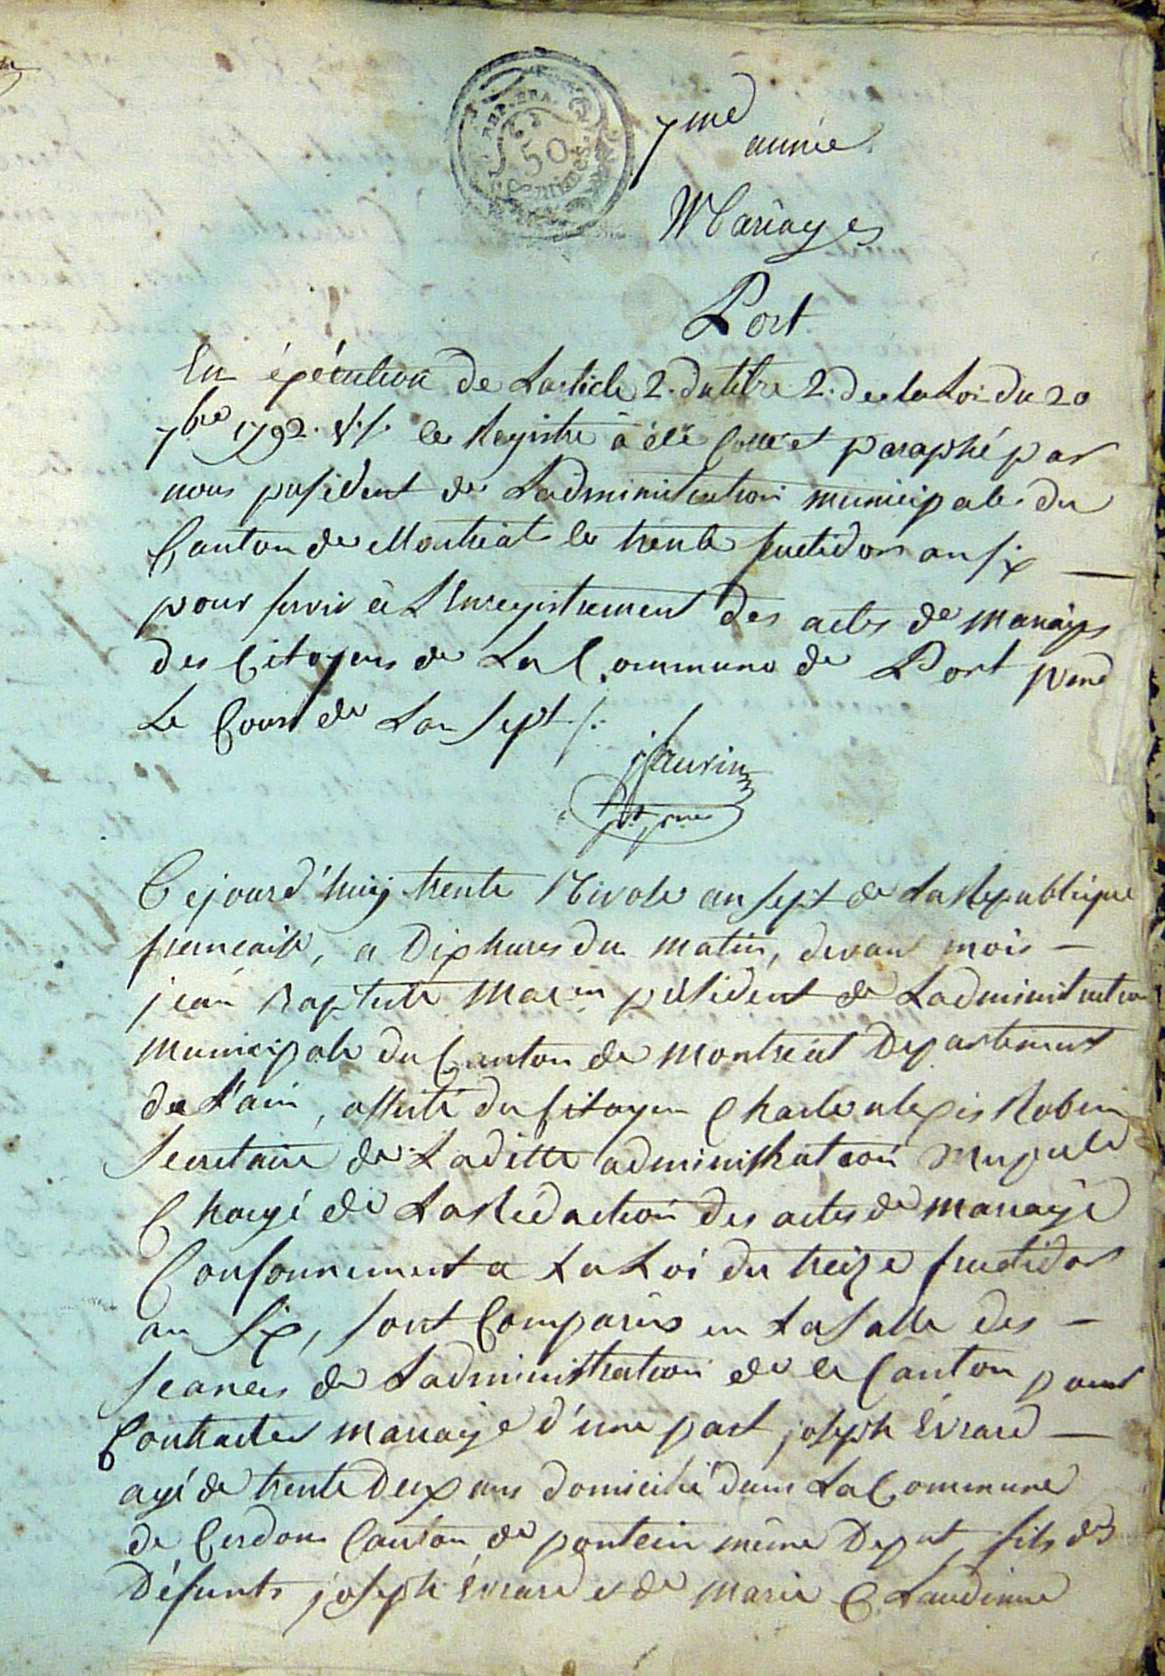 REP. FRA.
50
Centimes
7me année
Mariages
Port
En éxécution de Larticle 2. du titre 2. de la Loi du 20
7bre 1792. V.S. le Registre à été Cotté et paraphé par
nous président de Ladministration municipale du
Canton de Montréal le trente fructidor an six
pour servir à L'Enregistrement des actes de mariages
des Citoyens de La Commune de Port pend
Le Cours de Lan Sept
Cejourd'huy trente Nivose an sept de La Republique
francaise, a Dix heures du matin, devant mois
jean Baptiste président de Ladministration
Municipale du Canton de Montréal Departement
de L'ain, assisté du Citoyen Charle alexis Robin
Secretaire de Laditte administration Mupale
Chargé de La Rédaction des actes de mariage
Conformement a La Loi du treize fructidor
an Six, sont Comparus en La Salle des
seances de Ladministration de ce Canton pour
Contracter mariage d'une part joseph Evrard
agé de trente Deux ans domicilié dans La Commune
de Cerdon Canton de poncin même Depat, fils des
Défunts joseph Evrard et de Marie Claudinne